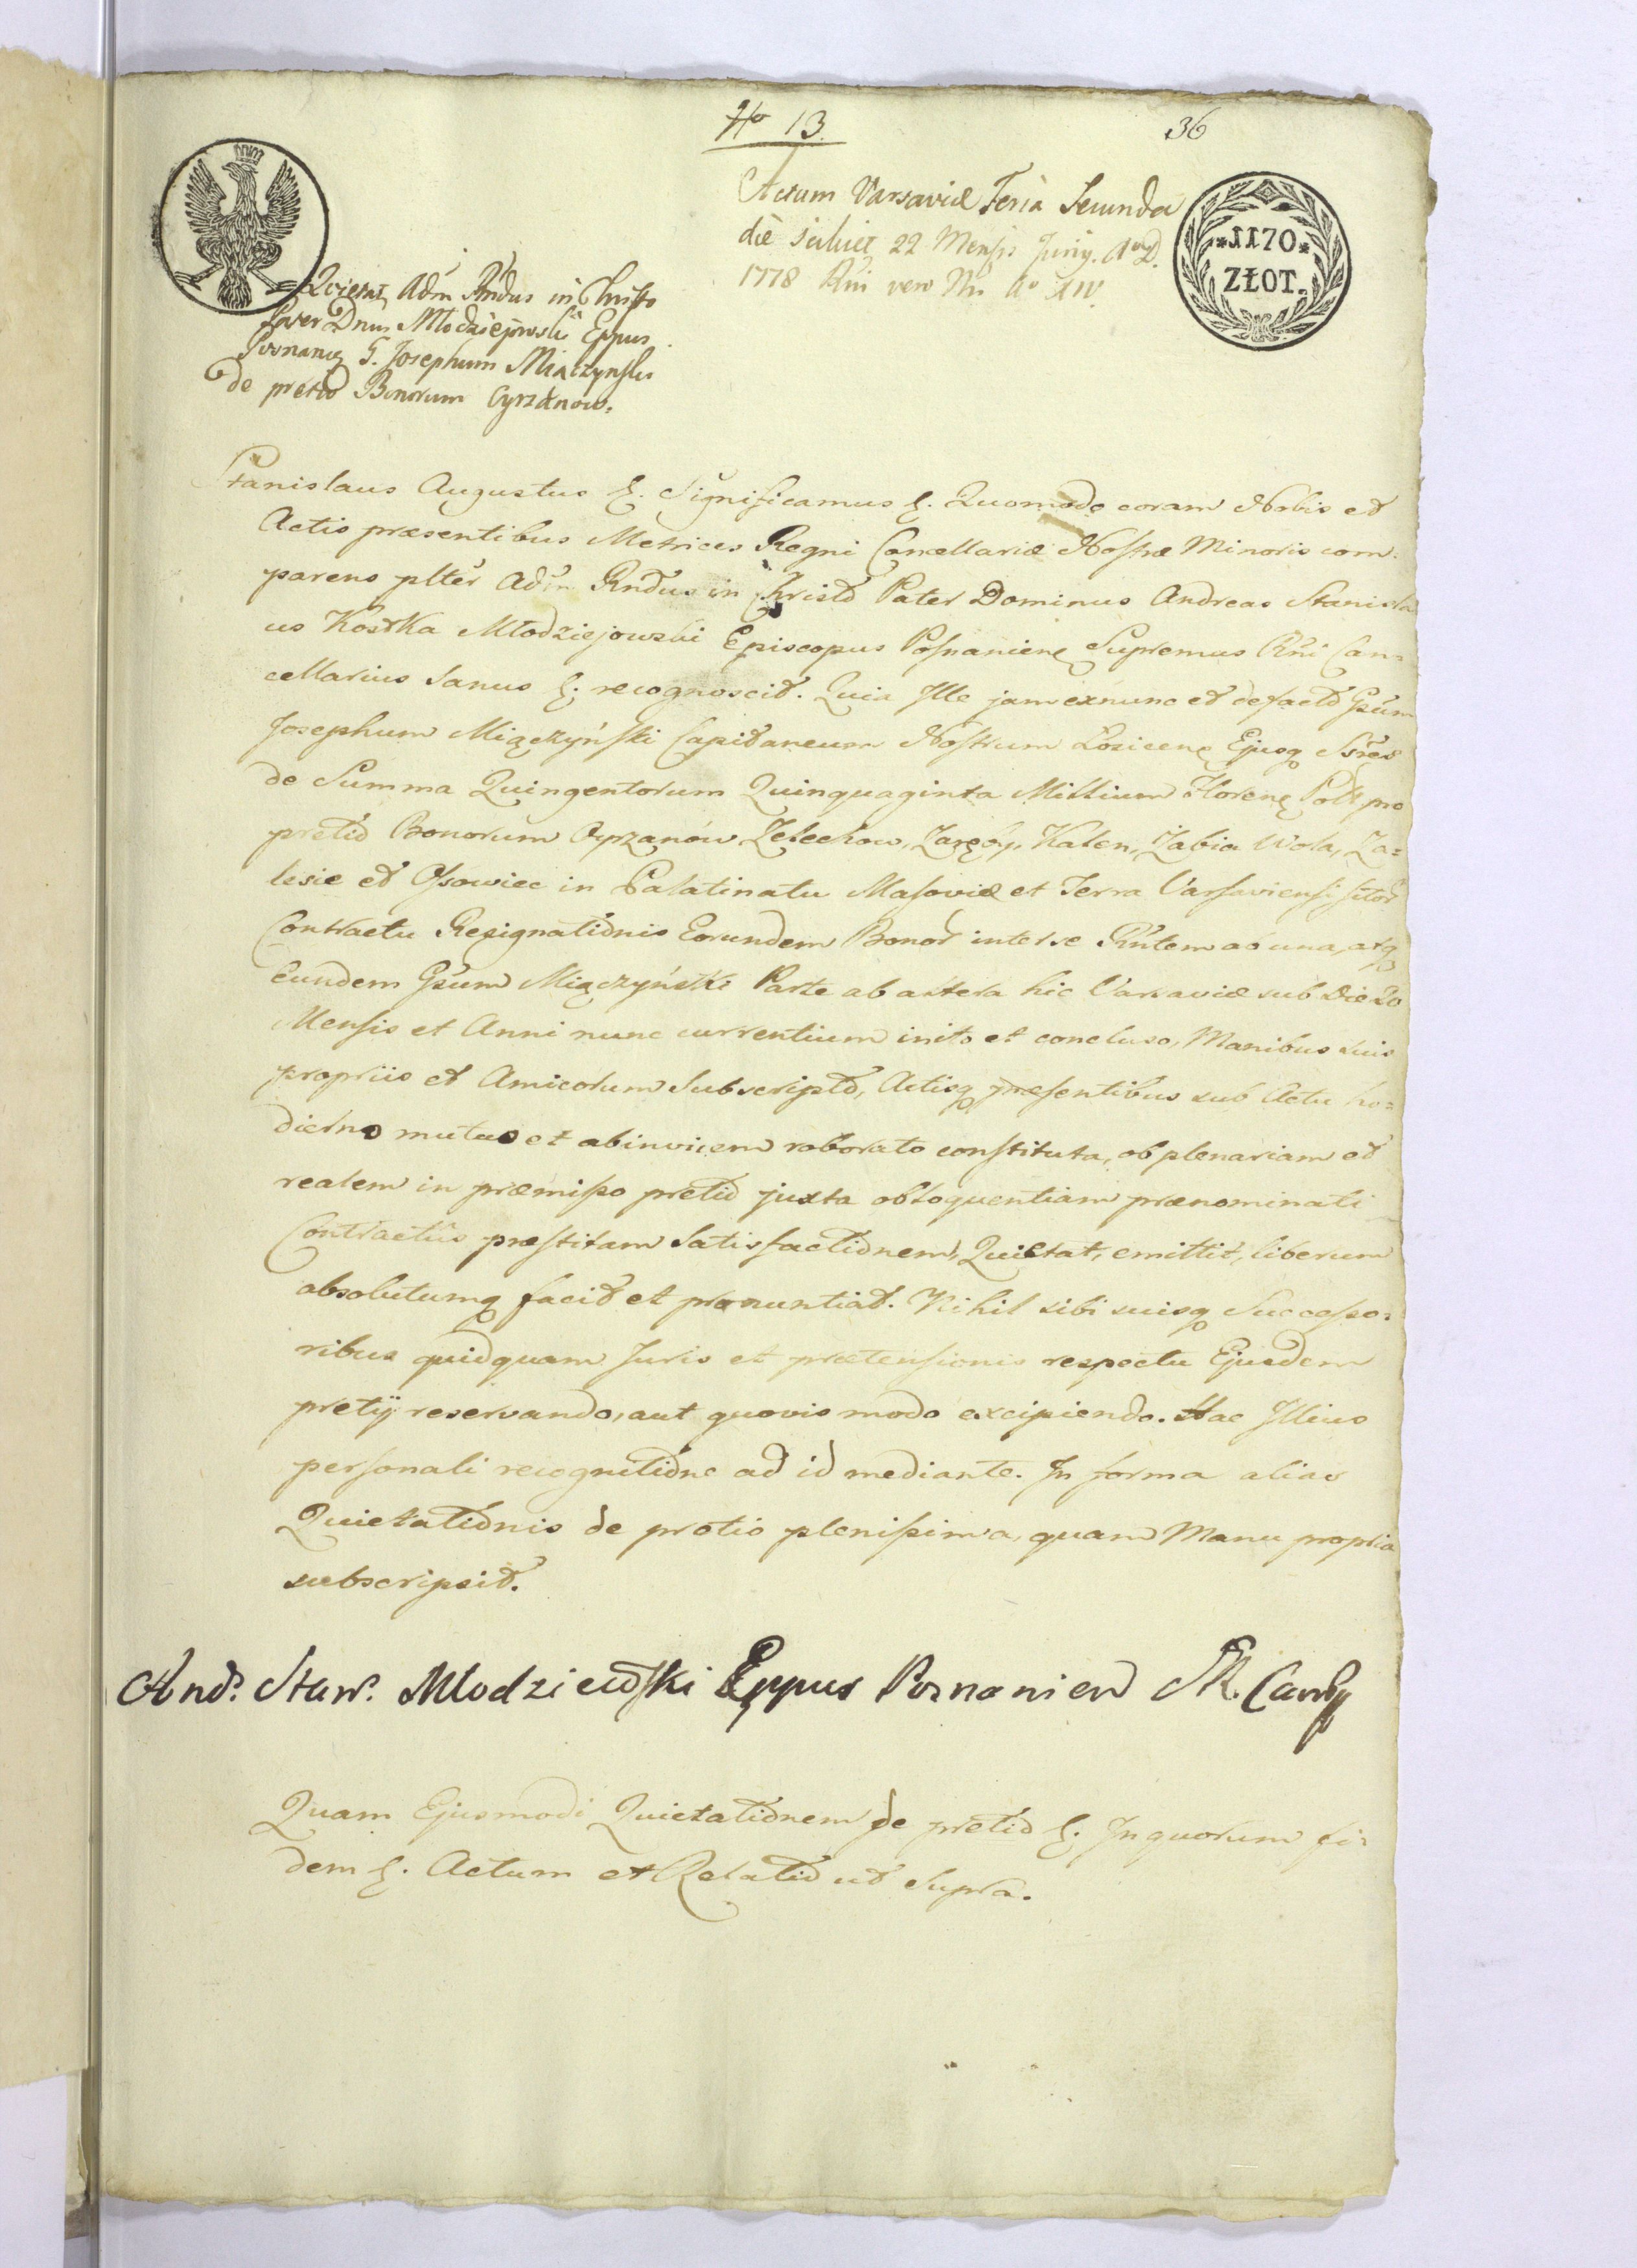 No 13.
36
Actum Varsaviæ Feria Secunda
die scilicet 22 Mensis Junÿ. Aº D.
1778 Rñi vero Nri Aº XIV.
*1170*
ZŁOT.
Quietat Adm Rndus in Christo
Pater Dnus Młodziejowski Eppus
Posnanię G. Josephum Miączynski
de pretio Bonorum Oyrzanow.
Stanislaus Augustus &. Significamus &. Quomodo coram Nobis et
Actis præsentibus Metrices Regni Cancellariæ Nostræ Minoris com-
parens plter Adm Rndus in Christo Pater Dominus Andreas Stanisla
us Kostka Młodziejowski Episcopus Posnanienę Supremus Rñi Can=
cellarius Sanus &. recognoscit. Quia Ille jam exnunc et de facto Gsum
Josephum Miączyński Capitaneum Nostrum Łosicenę Ejusq Ssres
de Summa Quingentorum Quinquaginta Millium Florenę Poll pro
pretio Bonorum Oyrzanów, Zelechow, Zaręby, Kalen, Żabia Wola, Za=
lesie et Osowiec in Palatinatu Masoviæ et Terra Varsaviensi sitor
Contractu Resignationis Eorundem Bonor inter se Rntem ab una, atq
Eundem Gsum Miączyński Parte ab altera hic Varsaviæ sub die 20
Mensis et Anni nunc currentium inito et concluso, Manibus suis
propriis et Amicorum Subscripto, Actisq præsentibus sub Actu ho=
dierno mutuo et abinvicem roborato constituta, ob plenariam et
realem in præmisso pretio juxta obloquentiam prænominati
Contractûs præstitam Satisfactionem, Quietat, emittit, liberum
absolutumq facit et pronuntiat. Nihil sibi suisq Successo=
ribus quidquam Juris et prætensionis respectu Ejusdem
pretÿ reservando, aut quovis modo excipiendo. Hac Illius
personali recognitione ad id mediante. In forma alias
Quietationis de pretio plenissima, quam Manu propria
subscripsit.
And. Stan. Młodziewski Eppus Poznanien S R. Canc
Quam Ejusmodi Quietationem de pretio &. In quorum fi=
dem &. Actum et Relatio ut Supra.